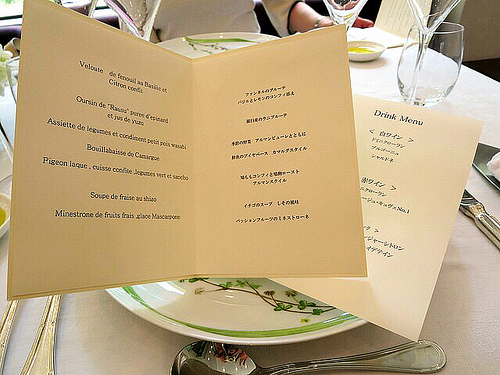 Veloute de fenouil au Basilic et
Citron confit
Oursin de "Rausu" puree d'epinard
et jus de yuzu
Assiette de legumes et condiment petit pois wasabi
Bouillabaisse de Camargue
Pigeon laque , cuisse confite ,legumes vert et sancho
Soupe de fraise au shiso
Minestrone de fruits frais ,glace Mascarpone
フェンネルのブルーテ
バジルとレモンのコンフィ添え
羅臼産のウニブルーテ
季節の野菜 アルマンピューレとともに
鮮魚のブイヤベース カマルグスタイル
鳩ももコンフィと鳩胸ロースト
アルマンスタイル
イチゴのスープ しその風味
パッションフルーツのミネストローネ
Drink Menu
< 白ワイン >
ドミニクローラン
ブルゴーニュ
シャルドネ
赤ワイン >
ニクローラン
No.1